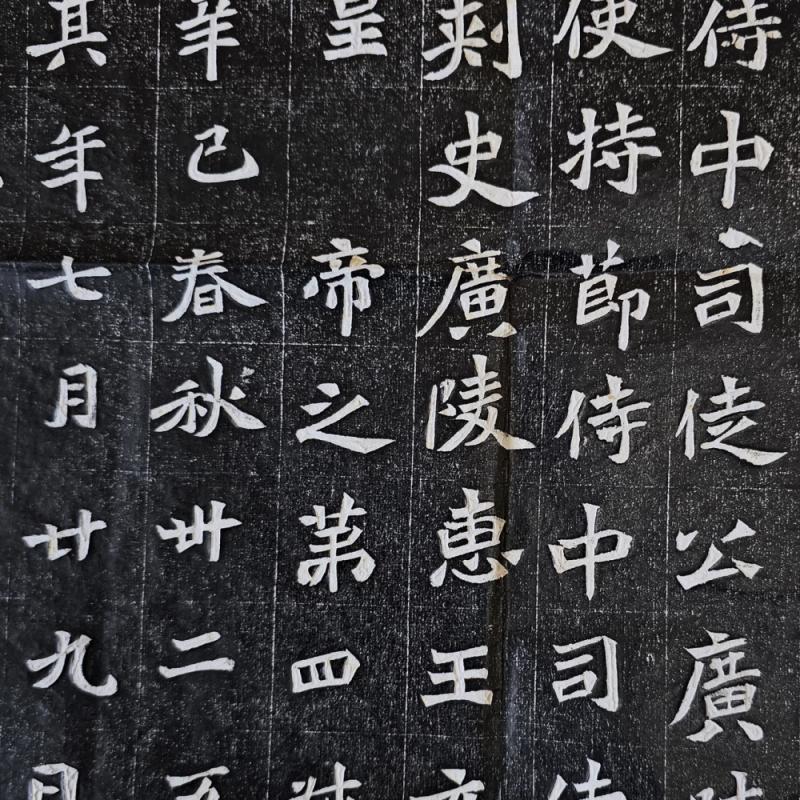 侍中司徒公廣
使持節侍中司
刺史廣陵惠王
皇帝之第四
辛巳春秋卌二
其年七月廿九